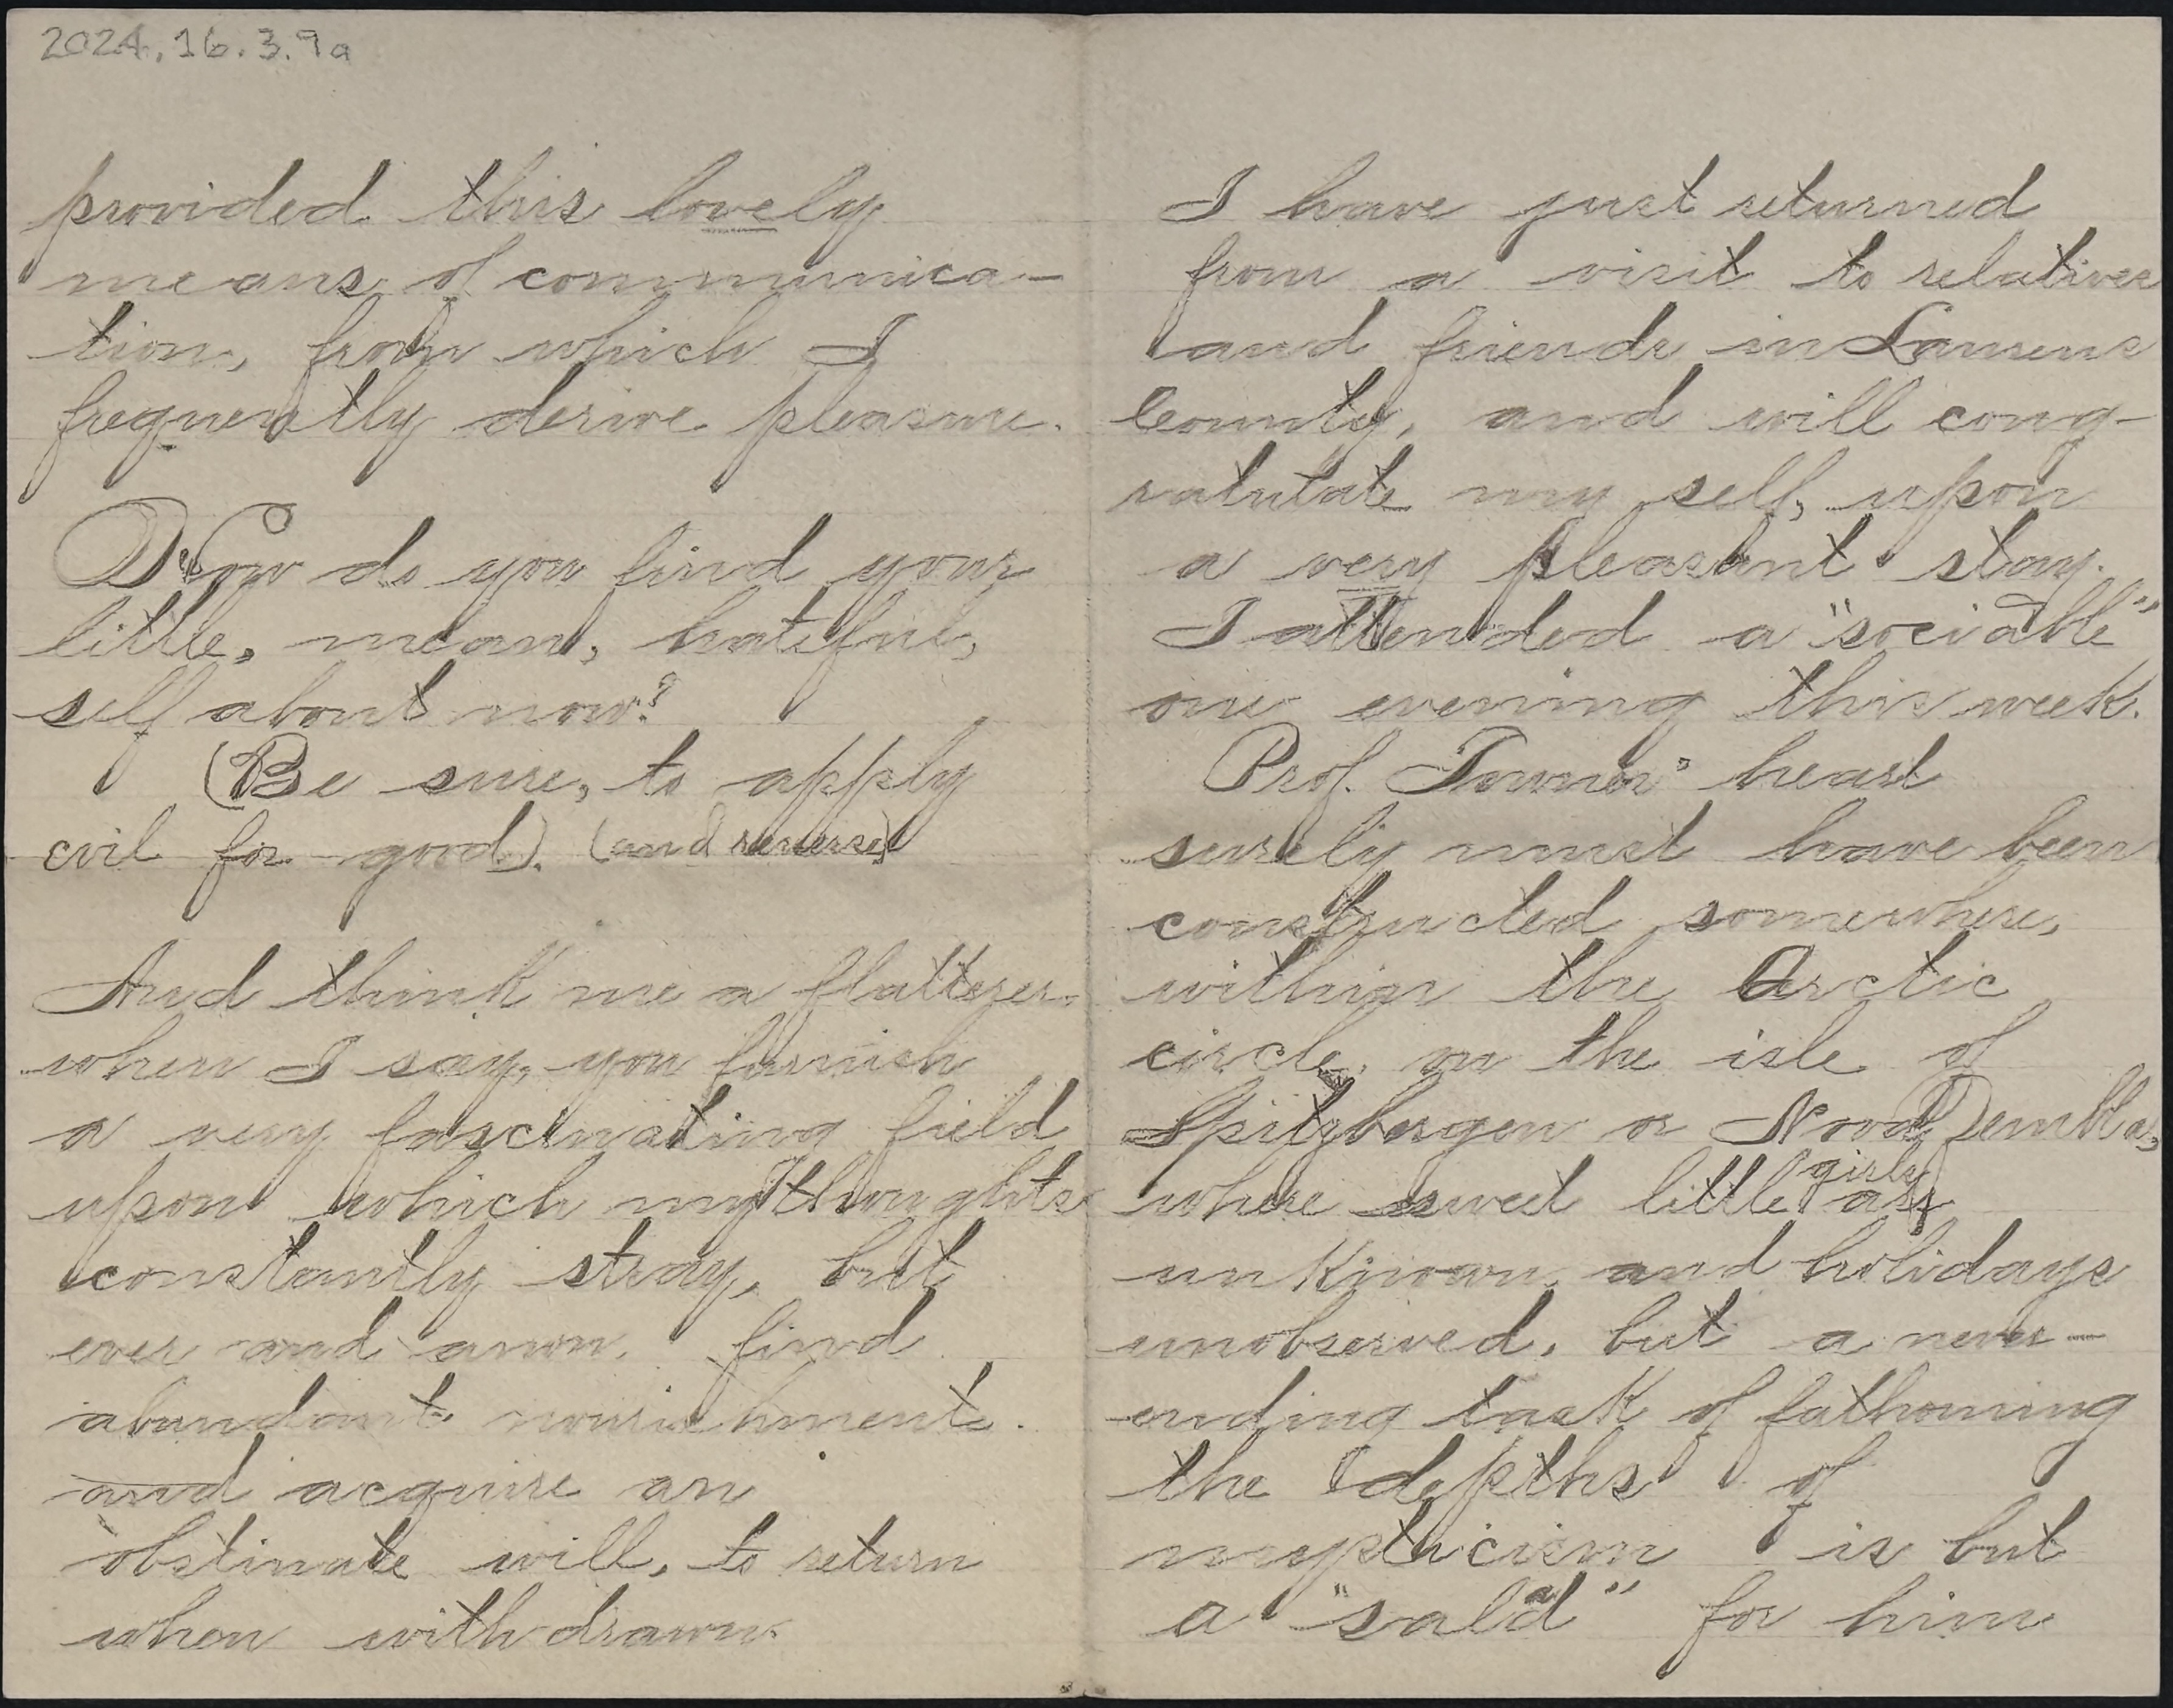 2024.16.3.9a
provided this lovely
means of communica-
tion, from which I
frequently derive pleasure.
Now do you find your
little, mean, hateful,
self about now?
(Be sure, to apply
evil for good). (and reverse)
And think me a flatterer
when I say, you furnish
a very fascinating field
upon which my thoughts
constantly stray, but
ever and anon, find
abundant nourishment.
and acquire an
obstinate will, to return
when withdrawn.
I have just returned
from a visit to relatives
and friends in
County, and will cong-
ratulate my self, upon
a very pleasant stay.
I attended a "sociable"
one evening this week.
Prof. heart
surely must have been
constructed somewhere,
within the Arctic
circle, on the isle of
Spitzbergen or Nova Zembla,
where sweet little girls are
unknown, and holidays
unobserved, but a never-
ending task of fathoming
the depths of
is but
a "salad" for him